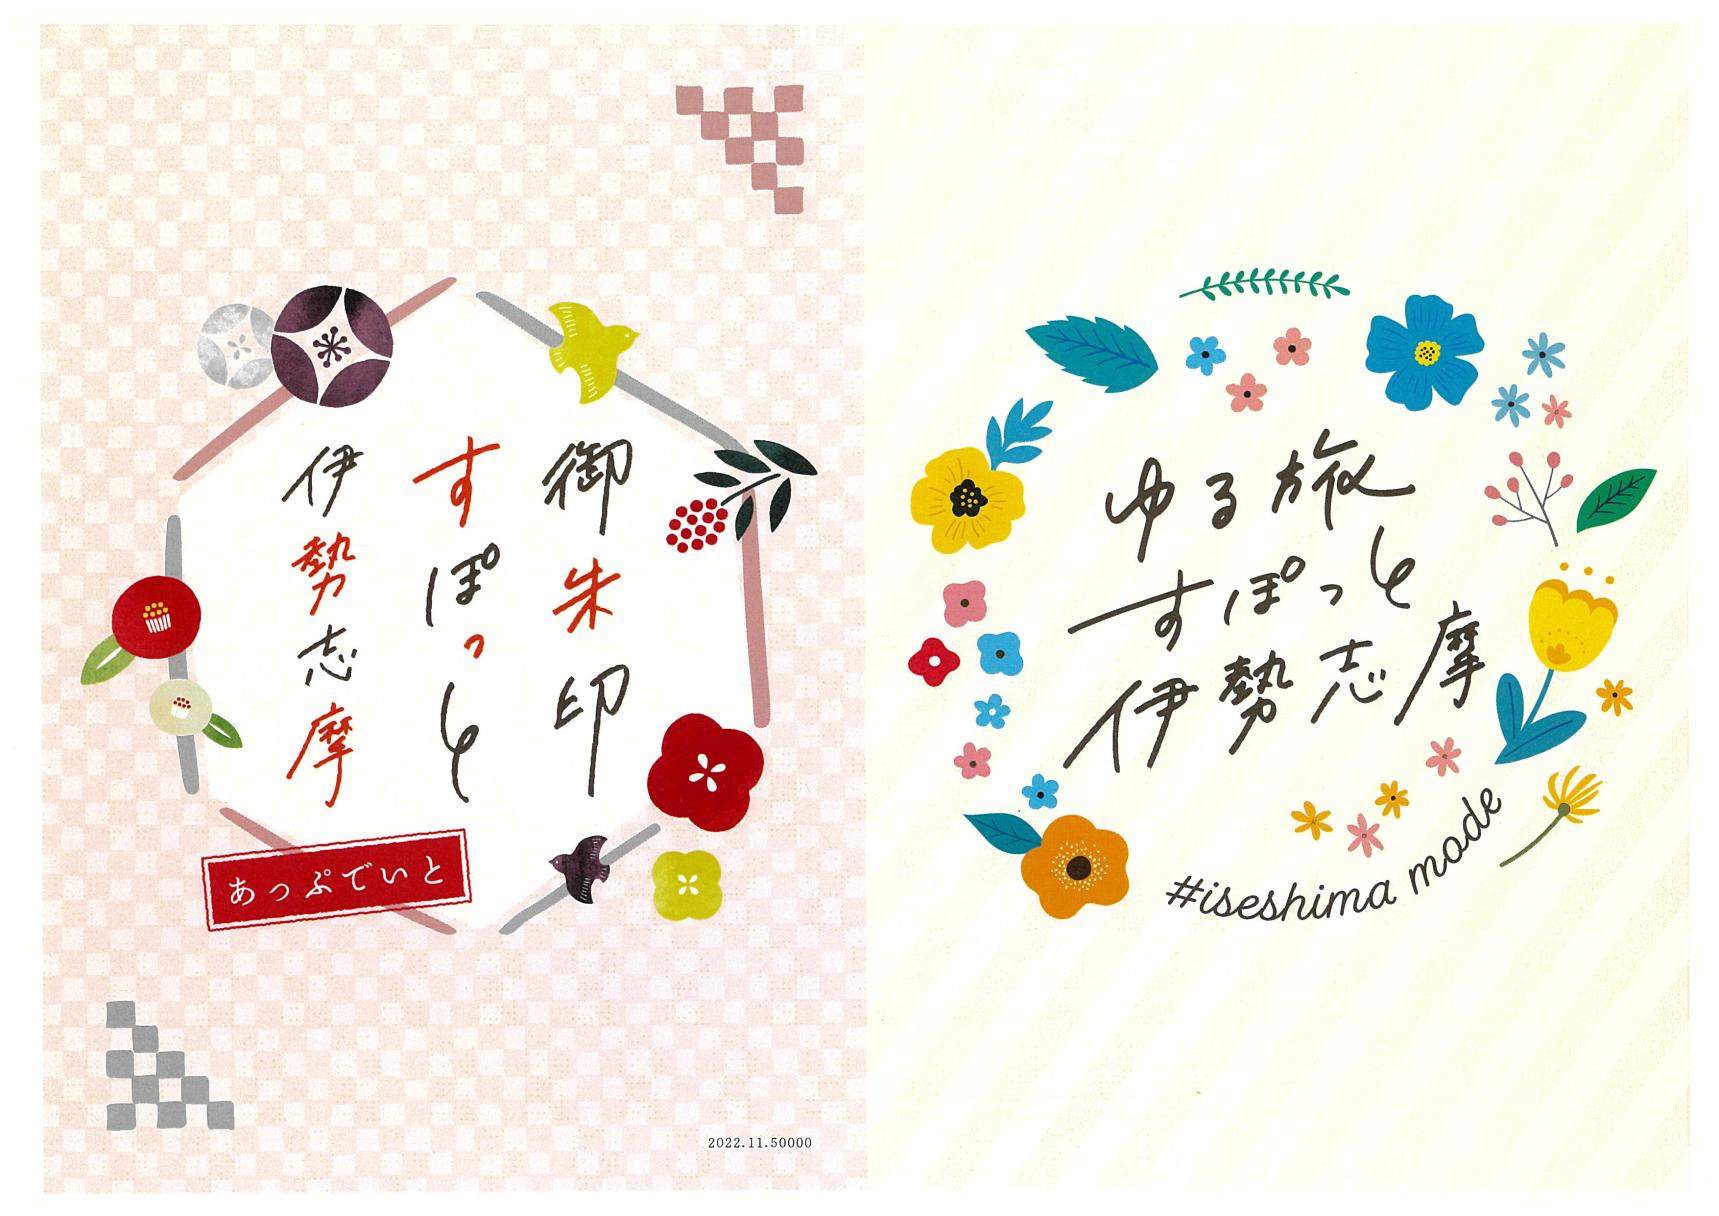 御朱印
すぽっと
伊勢志摩
あっぷでいと
2022.11.50000
ゆる旅
すぽっと
伊勢志摩
#iseshima mode